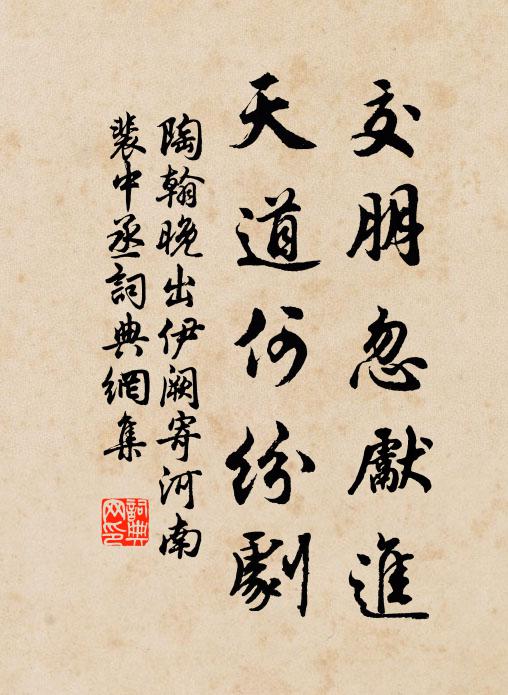 交朋忽獻進
天道何紛劇
陶翰晚出伊阙寄河南
裴中丞詞典網集
詞典网印